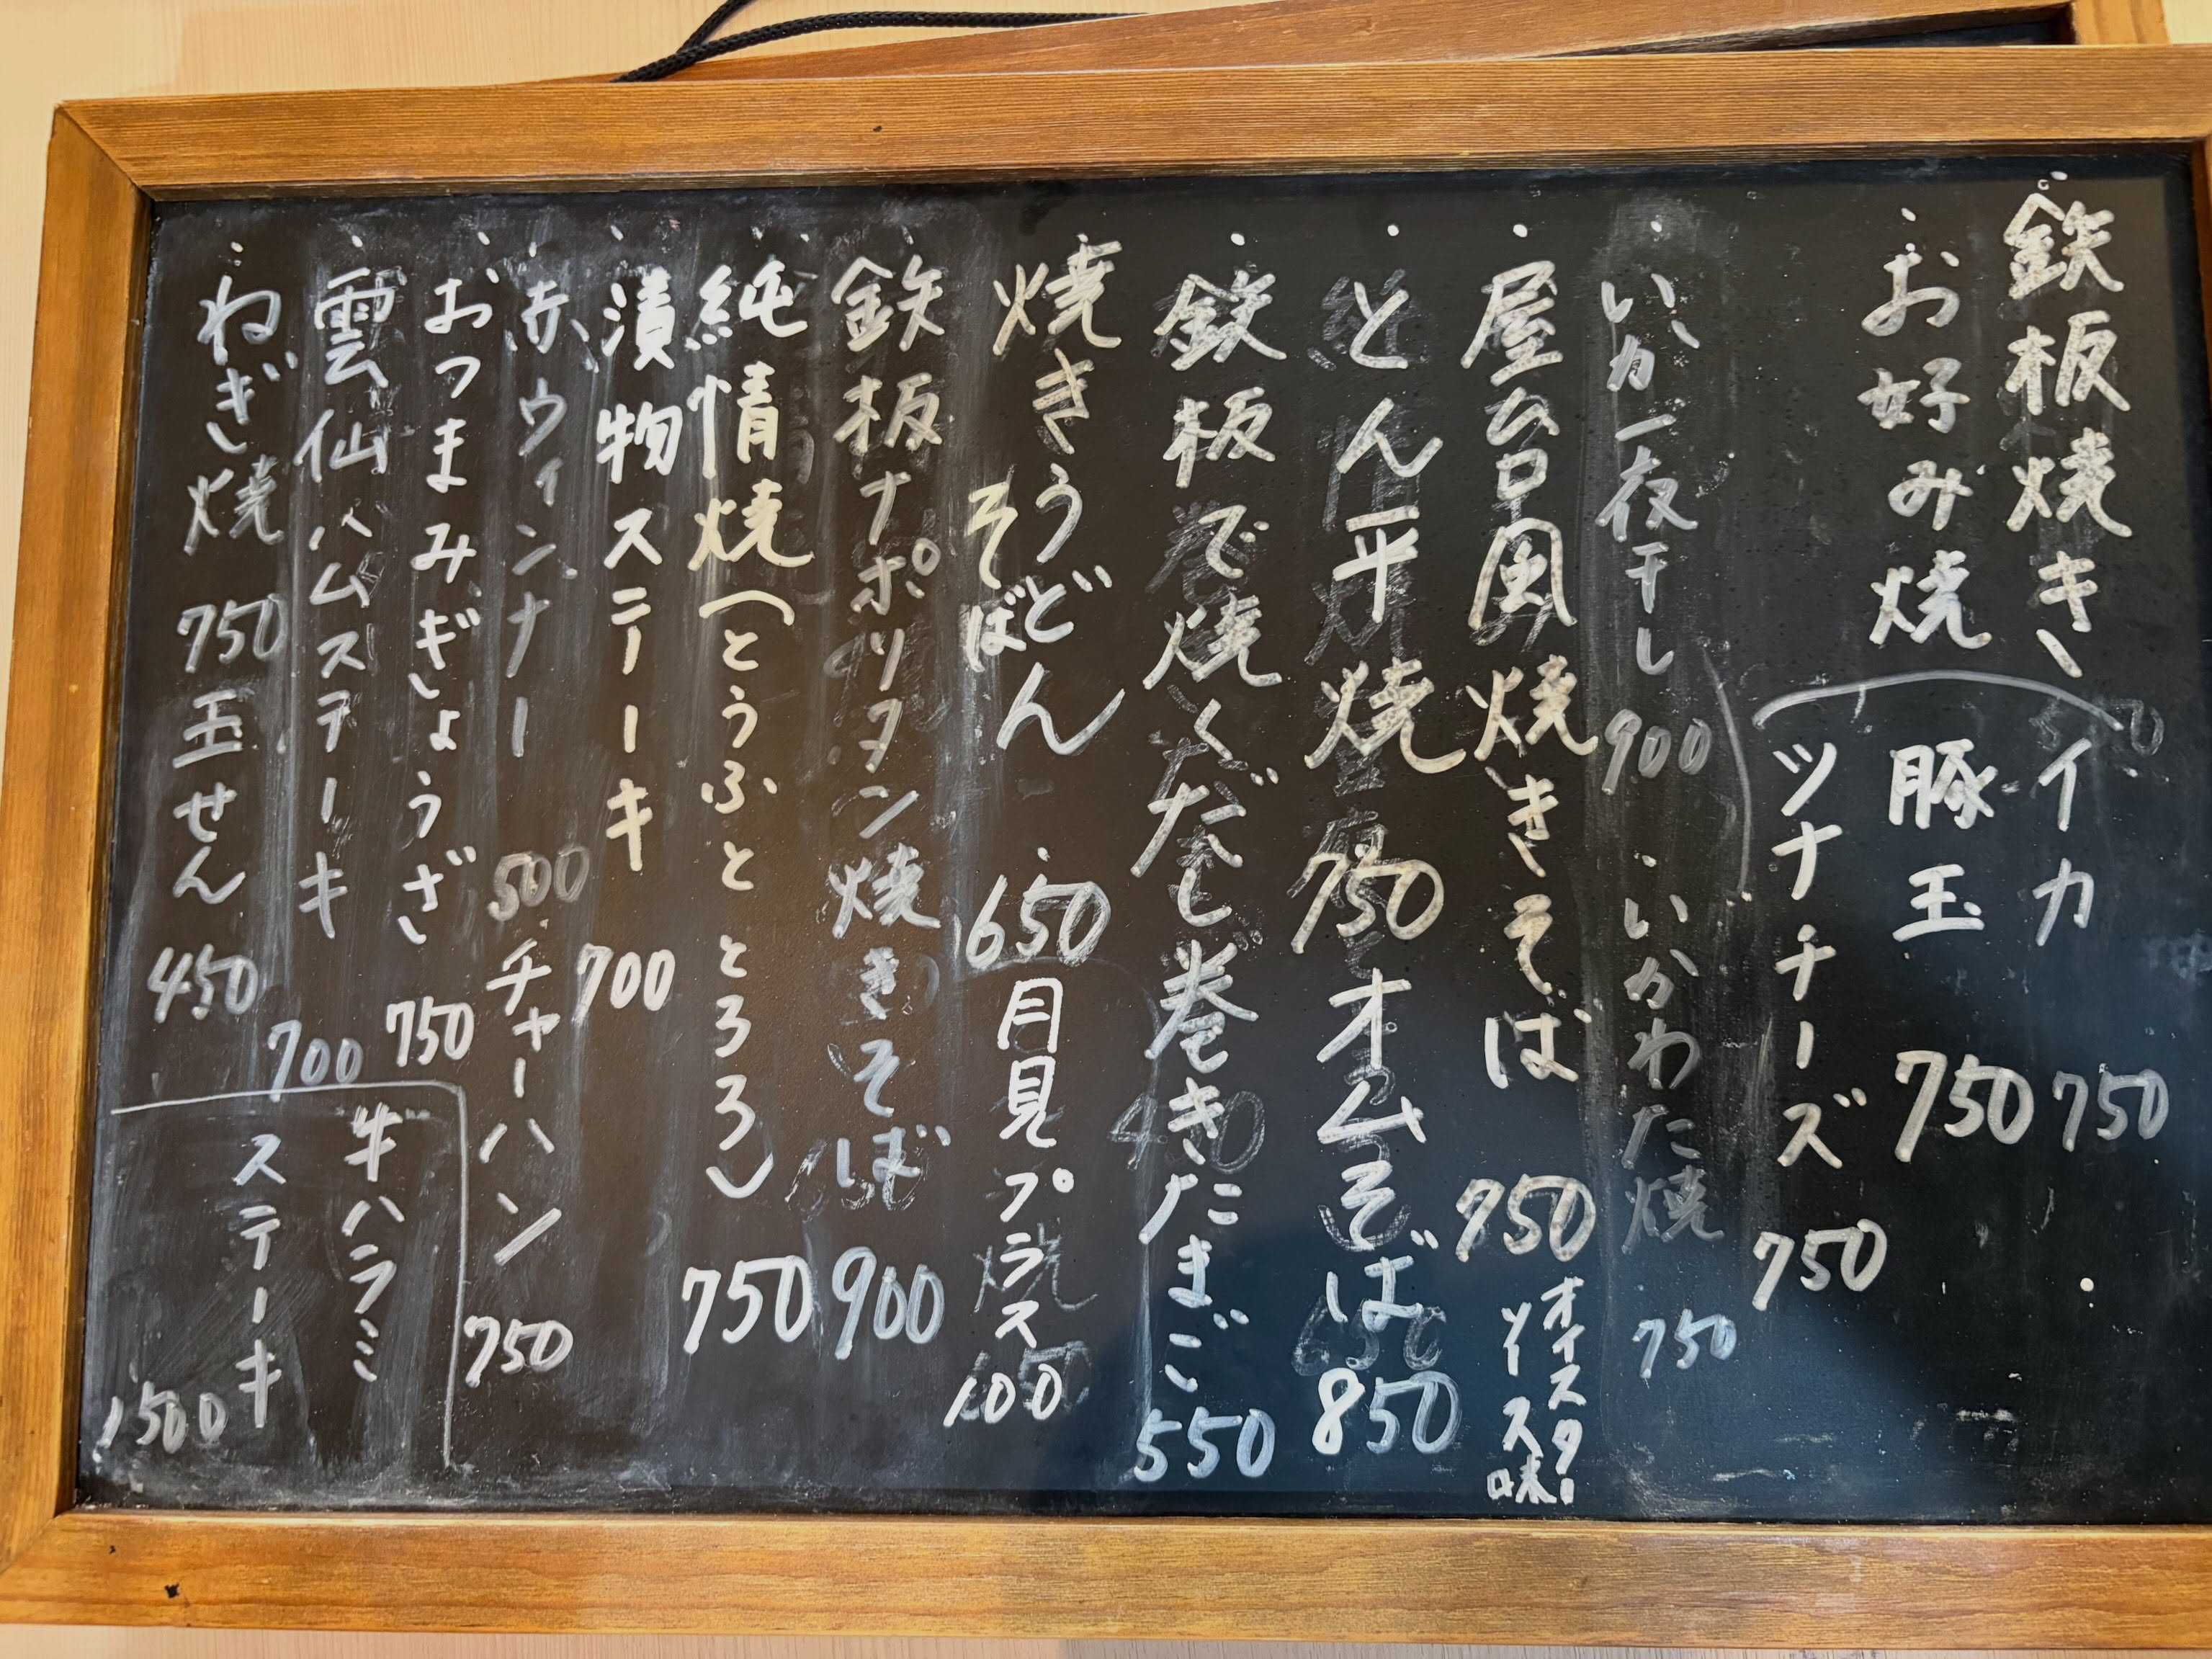 鉄板焼き
お好み焼
イカ 750
豚玉 750
ツナチーズ 750
いか一夜干し 900
いかわた焼 750
屋台風焼きそば 750 オイスターソース味
とん平焼 750 オムそば 850
鉄板で焼くだし巻きたまご 550
焼きうどん
そばん
650 月見プラス 100
鉄板ナポリタン焼きそば 900
純情焼(とうふととろろ) 750
漬物ステーキ 700
赤ウィンナー 500 チャーハン 750
おつまみぎょうざ 750
雲仙ハムステーキ 700
ねぎ焼 750 玉せん 450
牛ハラミ
ステーキ
1500